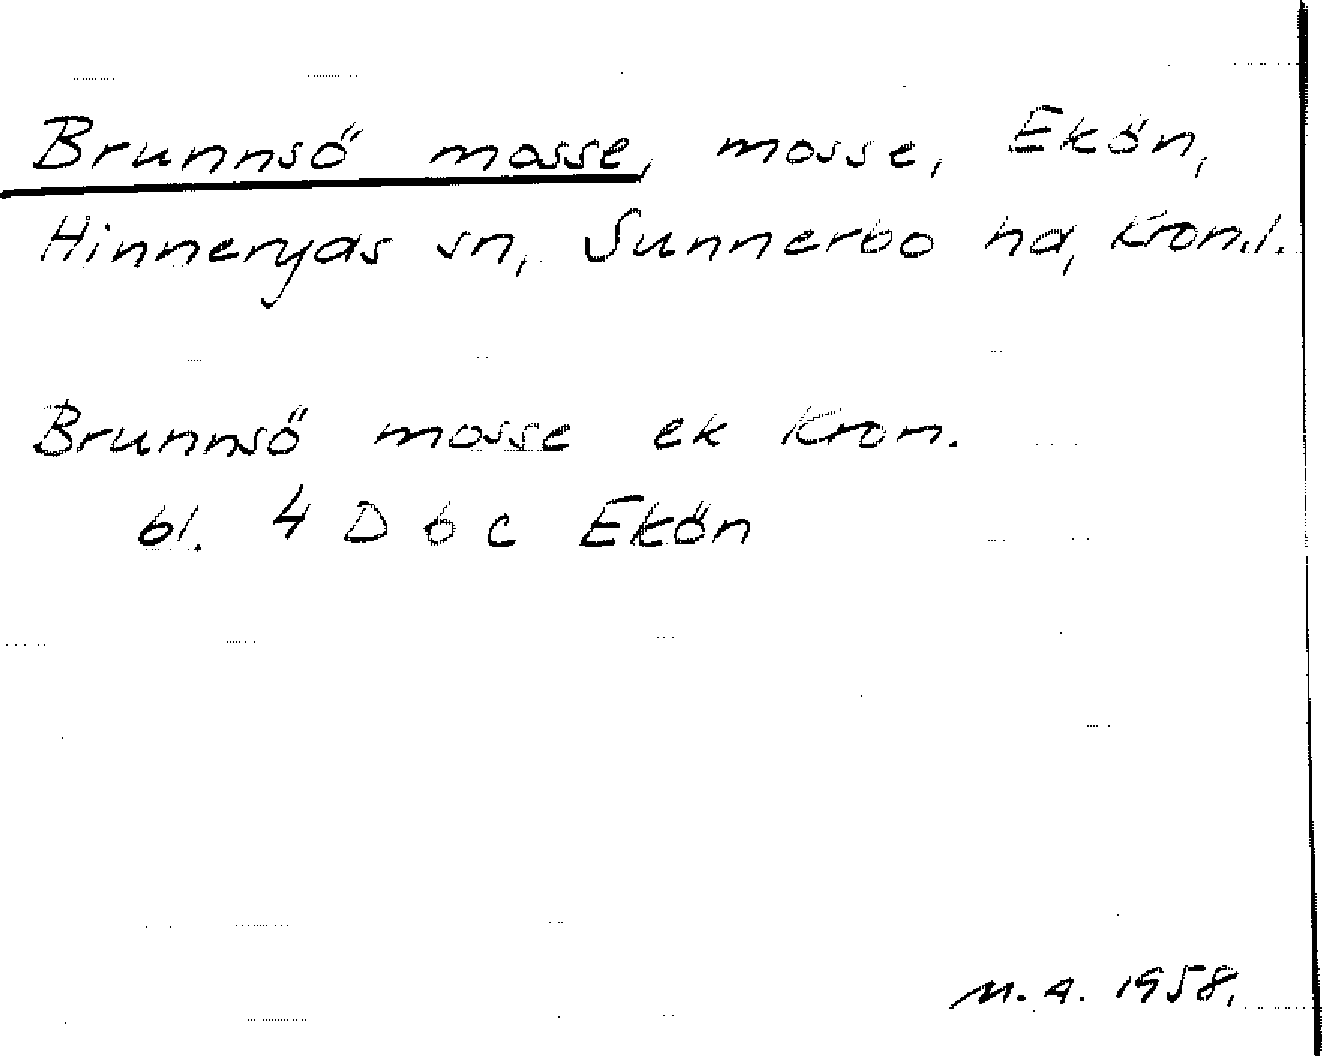 Brunnsö mosse, mosse, Ekön,
Hinneryds sn, Sunnerbo hd, Kron.l.
Brunnsö mosse ek Kron.
bl. 4 D 6 c Ekön
M.A. 1958.